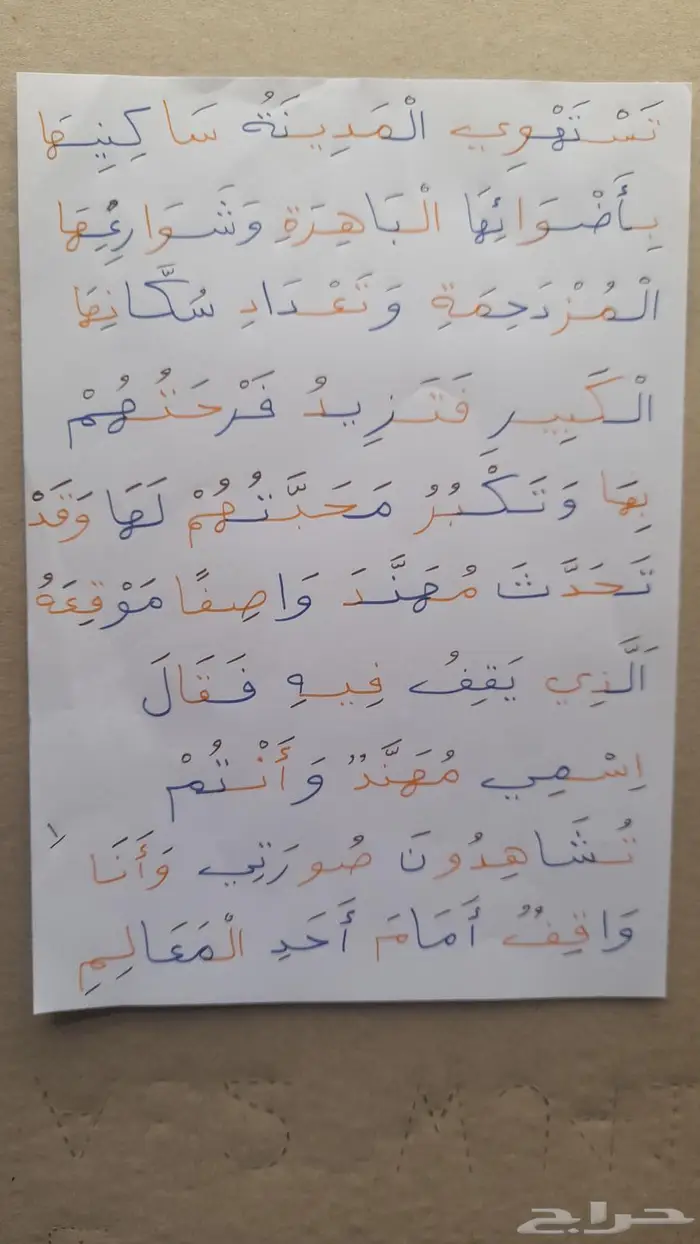 تَسْتَهْوِي الْمَدِينَةُ سَاكِنِيهَا
بِأَضْوَائِهَا الْبَاهِرَةِ وَشَوَارِعِهَا
الْمُزْدَحِمَةِ وَتَعْدَادِ سُكَّانِهَا
الْكَبِيرِ فَتَزِيدُ فَرْحَتُهُمْ
بِهَا وَتَكْبُرُ مَحَبَّتُهُمْ لَهَا وَقَدْ
تَحَدَّثَ مُهَنَّدَ وَاصِفًا مَوْقِعَهُ
اَلَّذِي يَقِفُ فِيهِ فَقَالَ
اِسْمِي مُهَنَّدٌ وَأَنْتُمْ
تُشَاهِدُونَ صُورَتِي وَأَنَا
وَاقِفٌ أَمَامَ أَحَدِ الْمَعَالِمِ
١
حراج